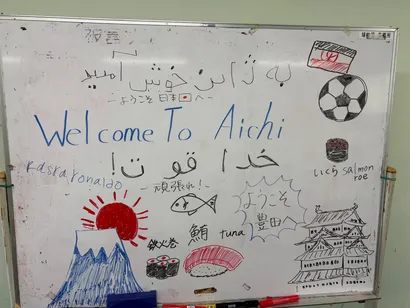 به ژاپن خوش آمدید
ーようこそ日本へー
Welcome To Aichi
خدا قوت!
ー頑張れ!ー
いくら salmon
roe
ようこそ
豊田へ
鉄火巻
鮪 tuna